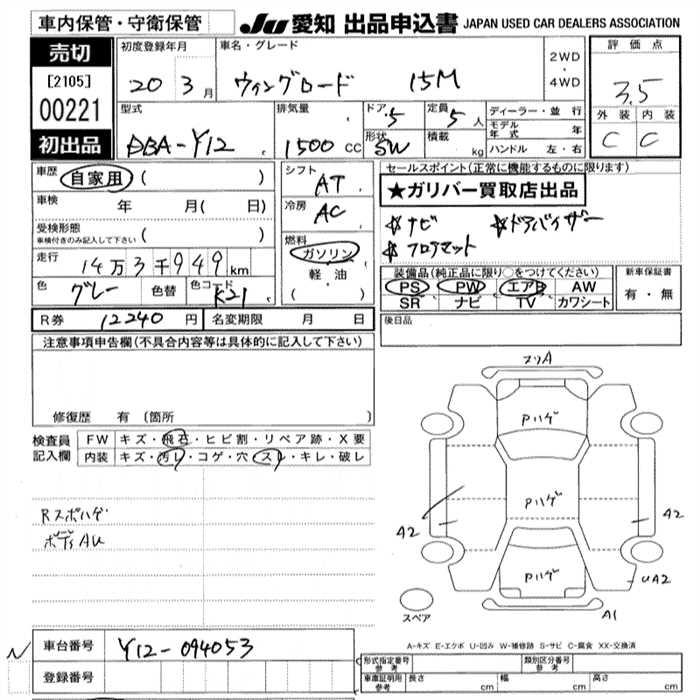 車内保管・守衛保管
JU 愛知 出品申込書 JAPAN USED CAR DEALERS ASSOCIATION
売切
[2105]
00221
初出品
初度登録年月
20 3月
車名・グレード
ウィングロード 15M
2WD
・
4WD
評価点
3.5
外装 内装
C C
型式
DBA-Y12
排気量
1500 CC
ドア
5
定員
5人
形状
SW
積載
kg
ディーラー・並行
モデル年式 年
ハンドル 左・右
車歴 自家用 ( )
車検 年 月( 日)
受検形態
車検付きのみ記入して下さい ( )
走行 14万3千949km
色 グレー 色替 色コード K21
シフト AT
冷房 AC
燃料
ガソリン
軽・油
( )
セールスポイント(正常に機能するものに限ります)
★ガリバー買取店出品
☆ナビ ☆ドアバイザー
☆フロアマット
装備品(純正品に限り○をつけてください)
PS PW エアB AW
SR ナビ TV カワシート
新車保証書
有・無
R券 12240円 名変期限 月 日
後日品
注意事項申告欄(不具合内容等は具体的に記入して下さい)
修復歴 有 〔箇所 〕
検査員記入欄
FW キズ・飛石・ヒビ割・リペア跡・X要
内装 キズ・汚レ・コゲ・穴・スレ・キレ・破レ
Rスポハゲ
ボディAU
フリA
Pハゲ
Pハゲ
Pハゲ
A2
A2
UA2
A1
スペア
A-キズ E-エクボ U-凹み W-補修跡 S-サビ C-腐食 XX-交換済
車台番号 Y12-094053
登録番号
形式指定番号 参考
類別区分番号 参考
車庫証明用 参考 長さ cm 幅 cm 高さ cm